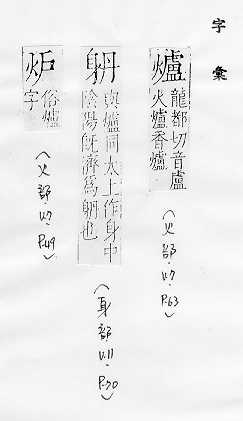 字彙
爐 龍都切音盧
火爐香爐
(火部·V.7·P.63)
與爐同太上作身中
陰陽旣濟爲躬也
(身部·V.11·P.70)
炉 俗爐
字
(火部·V.7·P.49)